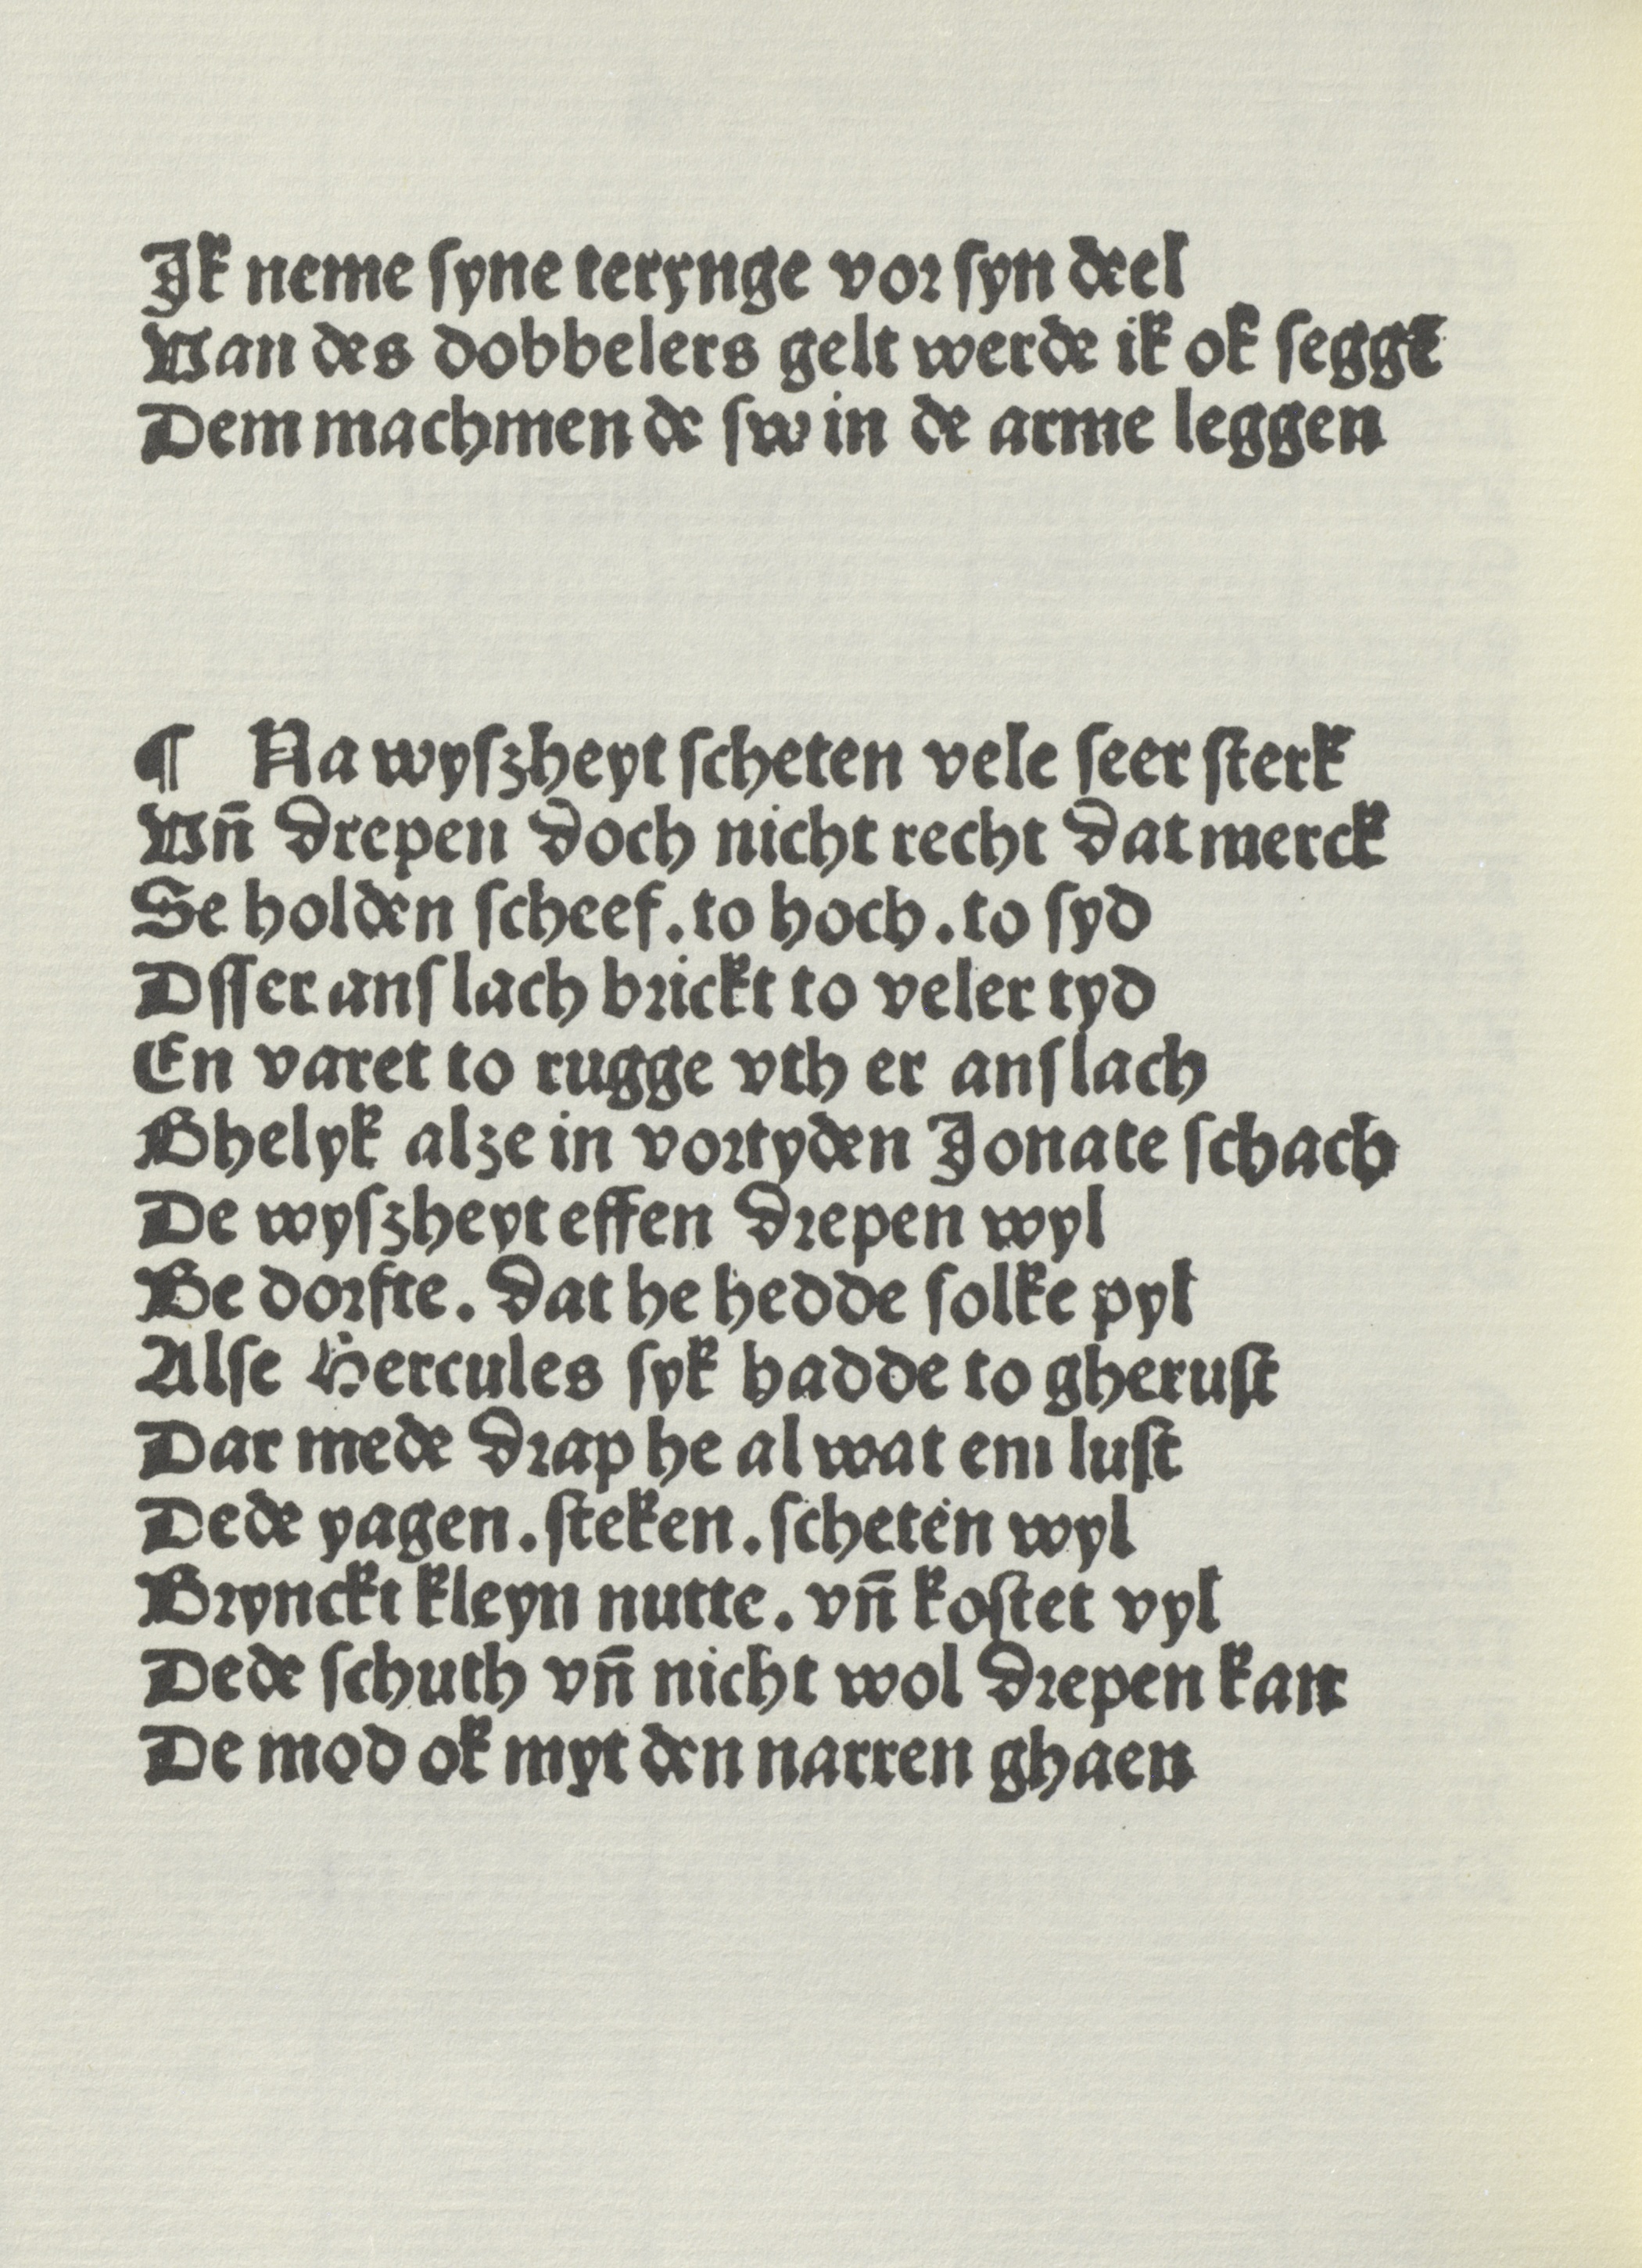 Jk neme ſyne terynge vor ſyn deel
Van des dobbelers gelt werde ik ok ſeggē
Dem machmen de ſw in de arme leggen
¶ Na wyſzheyt ſcheten vele ſeer ſterk
Vn̄ drepen doch nicht recht dat merck
Se holden ſcheef. to hoch. to ſyd
Dſſer anſlach brickt to veler tyd
En varet to rugge vth er anſlach
Ghelyk alze in vortyden Jonate ſchach
De wyſzheyt effen drepen wyl
Be dorfte. dat he hedde ſolke pyl
Alſe Hercules ſyk hadde to gheruſt
Dar mede drap he al wat em luſt
Dede yagen. ſteken. ſcheten wyl
Brynckt kleyn nutte. vn̄ koſtet vyl
Dede ſchuth vn̄ nicht wol drepen kan
De mod ok myt den narren ghaen